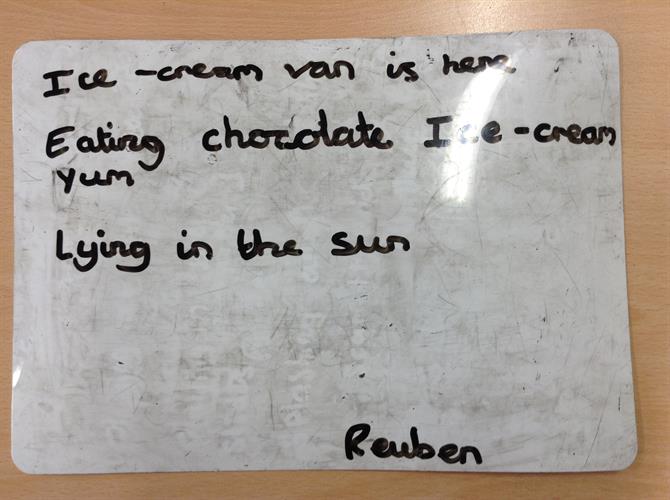 Ice-cream van is here
Eating chocolate Ice-cream
yum
Lying in the sun
Reuben